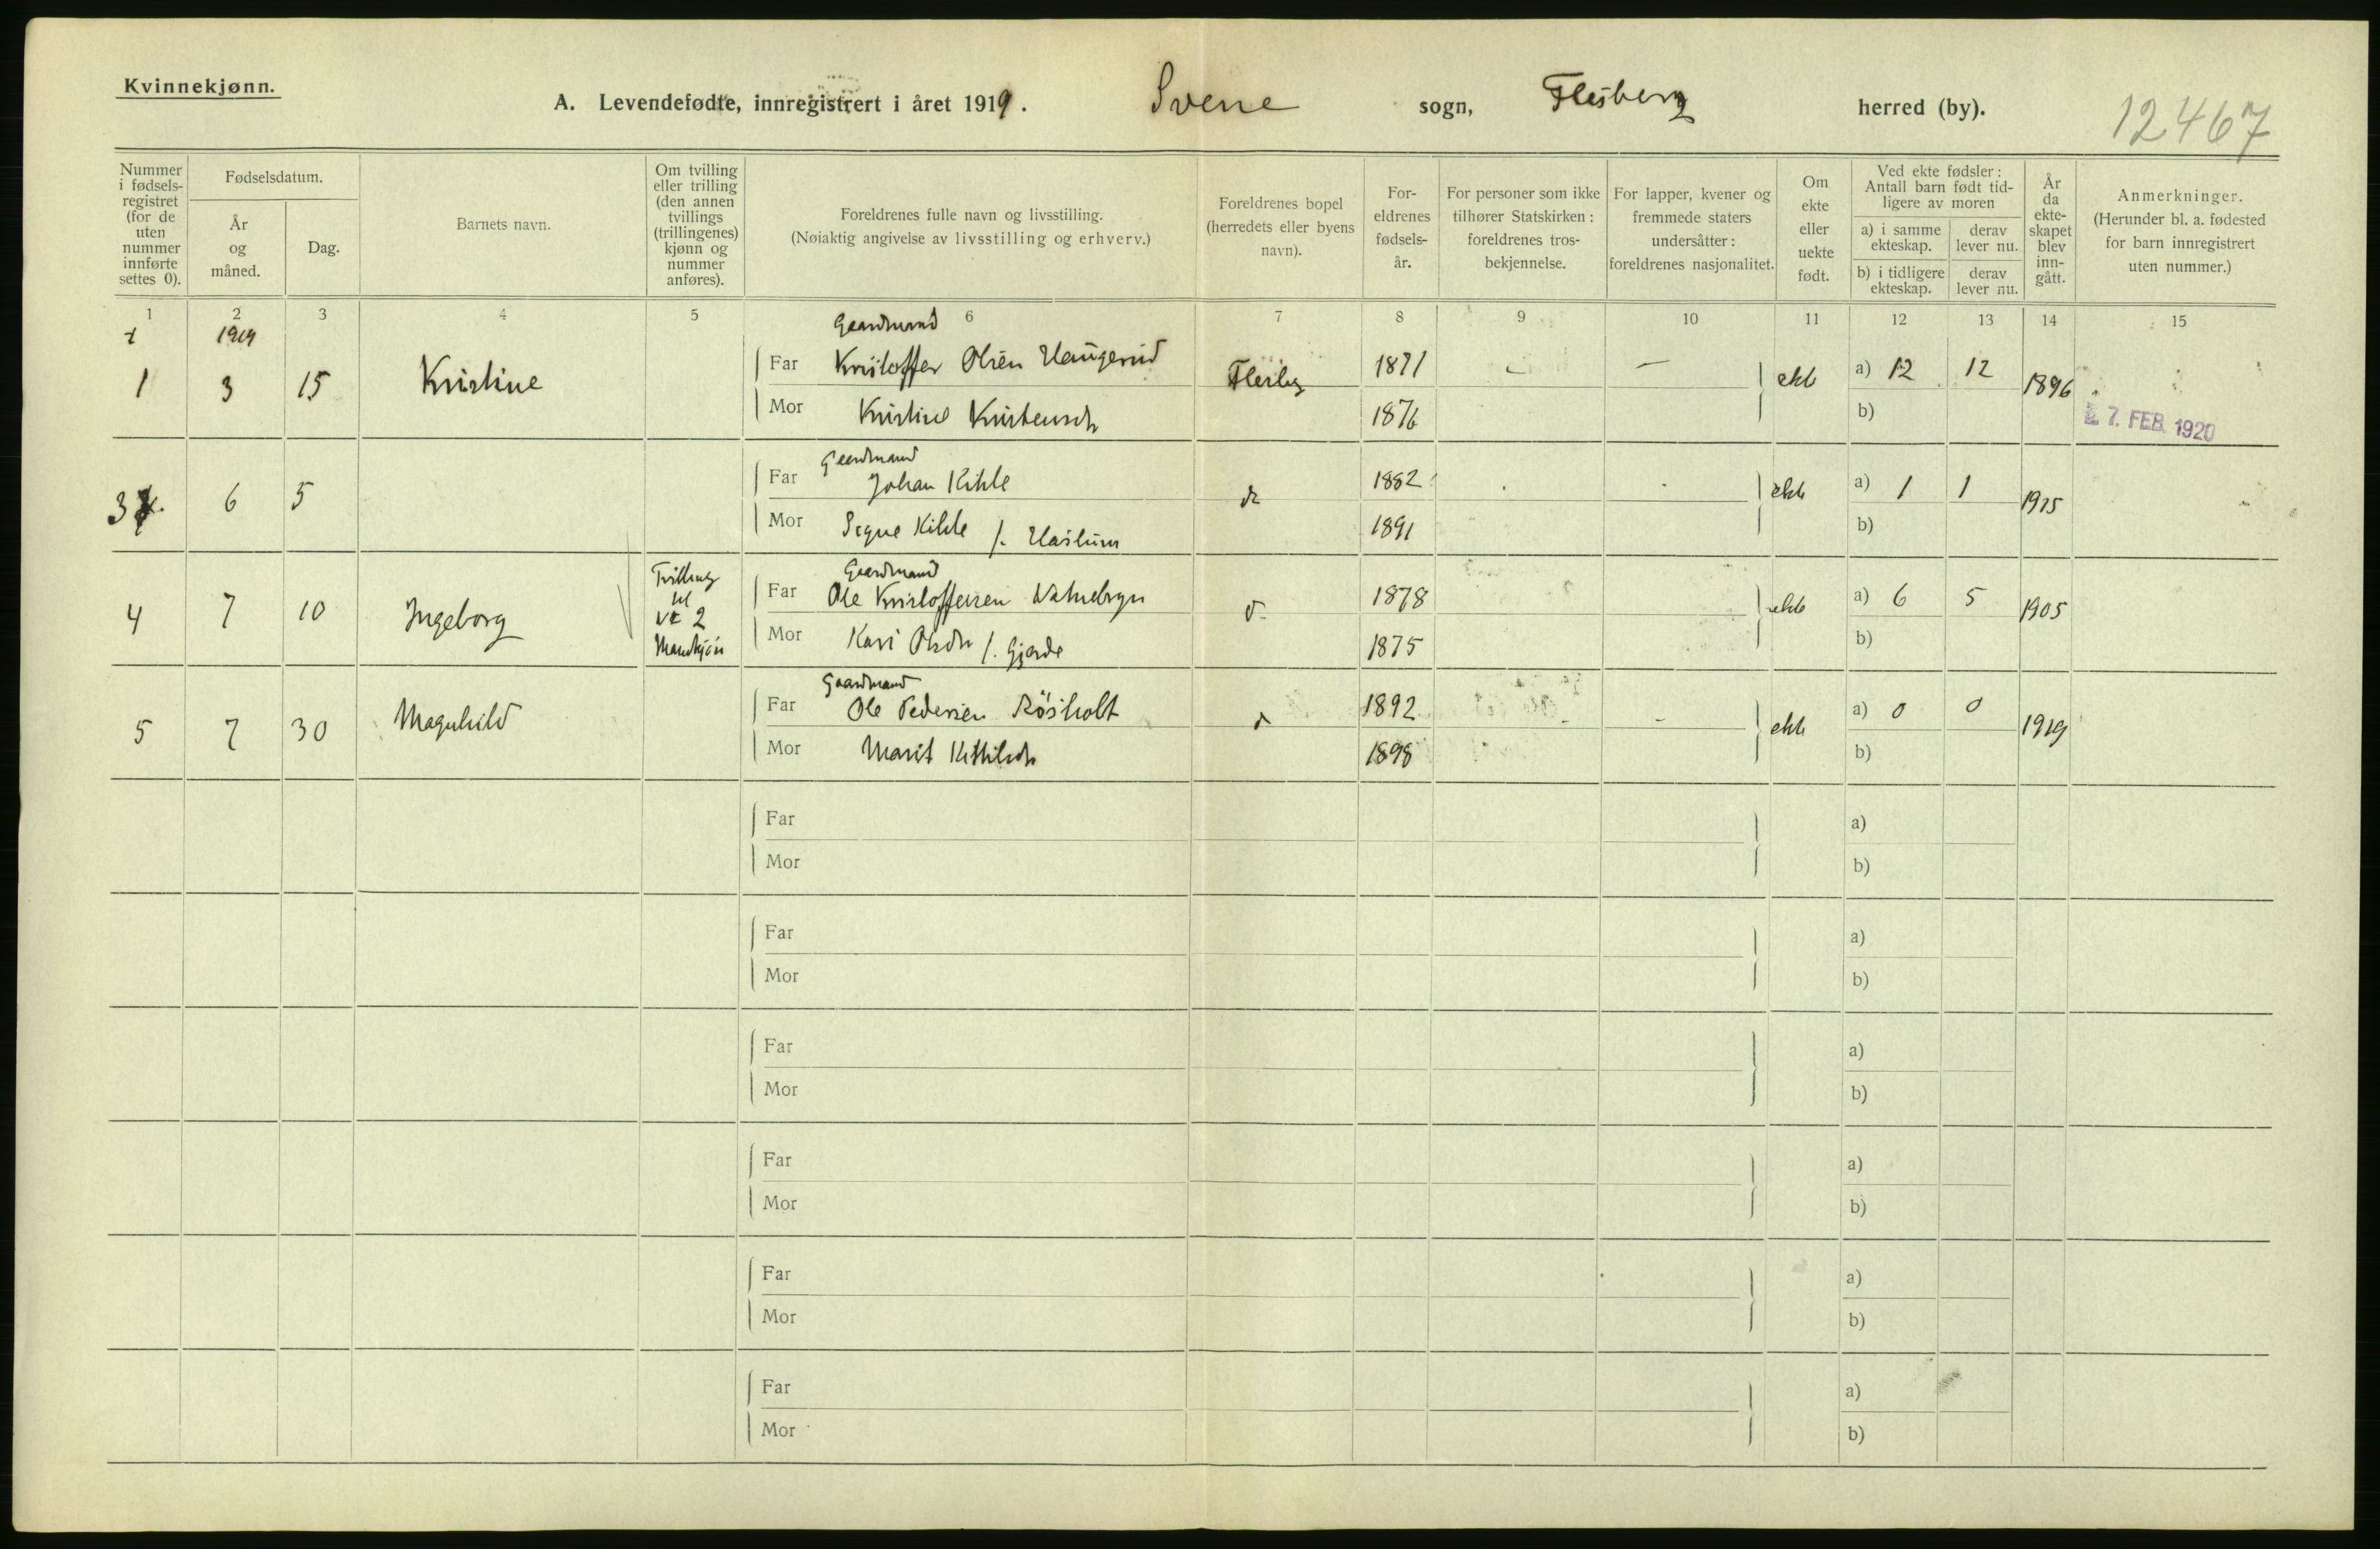 Kvinnekjønn.
A. Levendefødte, innregistrert i året 1919. Svene sogn, Flesberg herred (by).
12467
Nummer i fødsels-registret (for de uten nummer innførte settes 0).
Fødselsdatum.
År og måned.
Dag.
Barnets navn.
Om tvilling eller trilling (den annen tvillings (trillingenes) kjønn og nummer anføres).
Foreldrenes fulle navn og livsstilling.
(Nøiaktig angivelse av livsstilling og erhverv.)
Foreldrenes bopel (herredets eller byens navn).
For-eldrenes fødsels-år.
For personer som ikke tilhører Statskirken: foreldrenes tros-bekjennelse.
For lapper, kvener og fremmede staters undersåtter: foreldrenes nasjonalitet.
Om ekte eller uekte født.
Ved ekte fødsler: Antall barn født tid-ligere av moren
a) i samme ekteskap.
derav lever nu.
b) i tidligere ekteskap.
derav lever nu.
År da ekte-skapet blev inn-gått.
Anmerkninger.
(Herunder bl. a. fødested for barn innregistrert uten nummer.)
1 2 3 4 5 6 7 8 9 10 11 12 13 14 15
1919
Gaardmand
1 3 15 Kristine Far Kristoffer Olsen Haugerud Flesbg 1871 - - ekte a) 12 12 1896
Mor Kristine Kristensdr 1876 b)
27. FEB. 1920
Gaardmand
3 6 5 Far Johan Kihle do 1882 ekte a) 1 1 1915
Mor Signe Kihle f. Haslum 1891 b)
Gaardmand
4 7 10 Ingeborg Tvilling til No 2 Mandkjøn Far Ole Kristoffersen 1878 ekte a) 6 5 1905
Mor Kari Olsdr f. Gjerde 1875 b)
Gaardmand
5 7 30 Magnhild Far Ole Pedersen Røsholt 1892 - ekte a) 0 0 1919
Mor Marit Kittilsdr 1898 b)
Far a)
Mor b)
Far a)
Mor b)
Far a)
Mor b)
Far a)
Mor b)
Far a)
Mor b)
Far a)
Mor b)